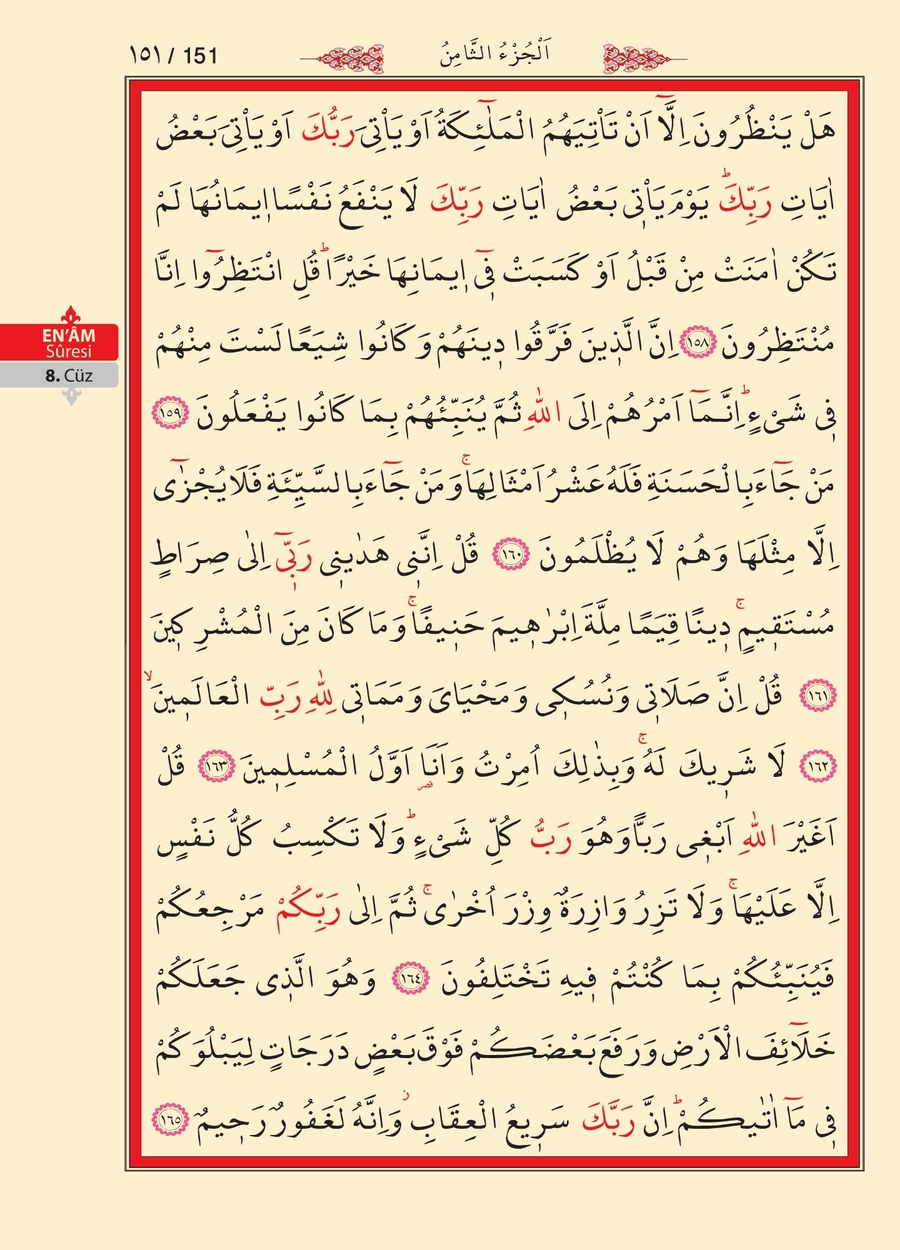 ١٥١ / 151
اَلْجُزْءُ الثَّامِنُ
هَلْ يَنْظُرُونَ اِلَّٓا اَنْ تَأْتِيَهُمُ الْمَلٰٓئِكَةُ اَوْ يَأْتِيَ رَبُّكَ اَوْ يَأْتِيَ بَعْضُ
اٰيَاتِ رَبِّكَۜ يَوْمَ يَأْت۪ي بَعْضُ اٰيَاتِ رَبِّكَ لَا يَنْفَعُ نَفْسًا ا۪يمَانُهَا لَمْ
تَكُنْ اٰمَنَتْ مِنْ قَبْلُ اَوْ كَسَبَتْ ف۪ٓي ا۪يمَانِهَا خَيْرًاۜ قُلِ انْتَظِرُٓوا اِنَّا
مُنْتَظِرُونَ ﴿١٥٨﴾ اِنَّ الَّذ۪ينَ فَرَّقُوا د۪ينَهُمْ وَكَانُوا شِيَعًا لَسْتَ مِنْهُمْ
ف۪ي شَيْءٍۜ اِنَّمَٓا اَمْرُهُمْ اِلَى اللّٰهِ ثُمَّ يُنَبِّئُهُمْ بِمَا كَانُوا يَفْعَلُونَ ﴿١٥٩﴾
مَنْ جَٓاءَ بِالْحَسَنَةِ فَلَهُ عَشْرُ اَمْثَالِهَاۚ وَمَنْ جَٓاءَ بِالسَّيِّئَةِ فَلَا يُجْزٰٓى
اِلَّا مِثْلَهَا وَهُمْ لَا يُظْلَمُونَ ﴿١٦٠﴾ قُلْ اِنَّن۪ي هَدٰين۪ي رَبّ۪ٓي اِلٰى صِرَاطٍ
مُسْتَق۪يمٍۚ د۪ينًا قِيَمًا مِلَّةَ اِبْرٰه۪يمَ حَن۪يفًاۚ وَمَا كَانَ مِنَ الْمُشْرِك۪ينَ
﴿١٦١﴾ قُلْ اِنَّ صَلَات۪ي وَنُسُك۪ي وَمَحْيَايَ وَمَمَات۪ي لِلّٰهِ رَبِّ الْعَالَم۪ينَۙ
﴿١٦٢﴾ لَا شَر۪يكَ لَهُۚ وَبِذٰلِكَ اُمِرْتُ وَاَنَا۬ اَوَّلُ الْمُسْلِم۪ينَ ﴿١٦٣﴾ قُلْ
اَغَيْرَ اللّٰهِ اَبْغ۪ي رَبًّا وَهُوَ رَبُّ كُلِّ شَيْءٍۜ وَلَا تَكْسِبُ كُلُّ نَفْسٍ
اِلَّا عَلَيْهَاۚ وَلَا تَزِرُ وَازِرَةٌ وِزْرَ اُخْرٰىۚ ثُمَّ اِلٰى رَبِّكُمْ مَرْجِعُكُمْ
فَيُنَبِّئُكُمْ بِمَا كُنْتُمْ ف۪يهِ تَخْتَلِفُونَ ﴿١٦٤﴾ وَهُوَ الَّذ۪ي جَعَلَكُمْ
خَلَٓائِفَ الْاَرْضِ وَرَفَعَ بَعْضَكُمْ فَوْقَ بَعْضٍ دَرَجَاتٍ لِيَبْلُوَكُمْ
ف۪ي مَٓا اٰتٰيكُمْۜ اِنَّ رَبَّكَ سَر۪يعُ الْعِقَابِۘ وَاِنَّهُ لَغَفُورٌ رَح۪يمٌ ﴿١٦٥﴾
EN'ÂM
Sûresi
8. Cüz